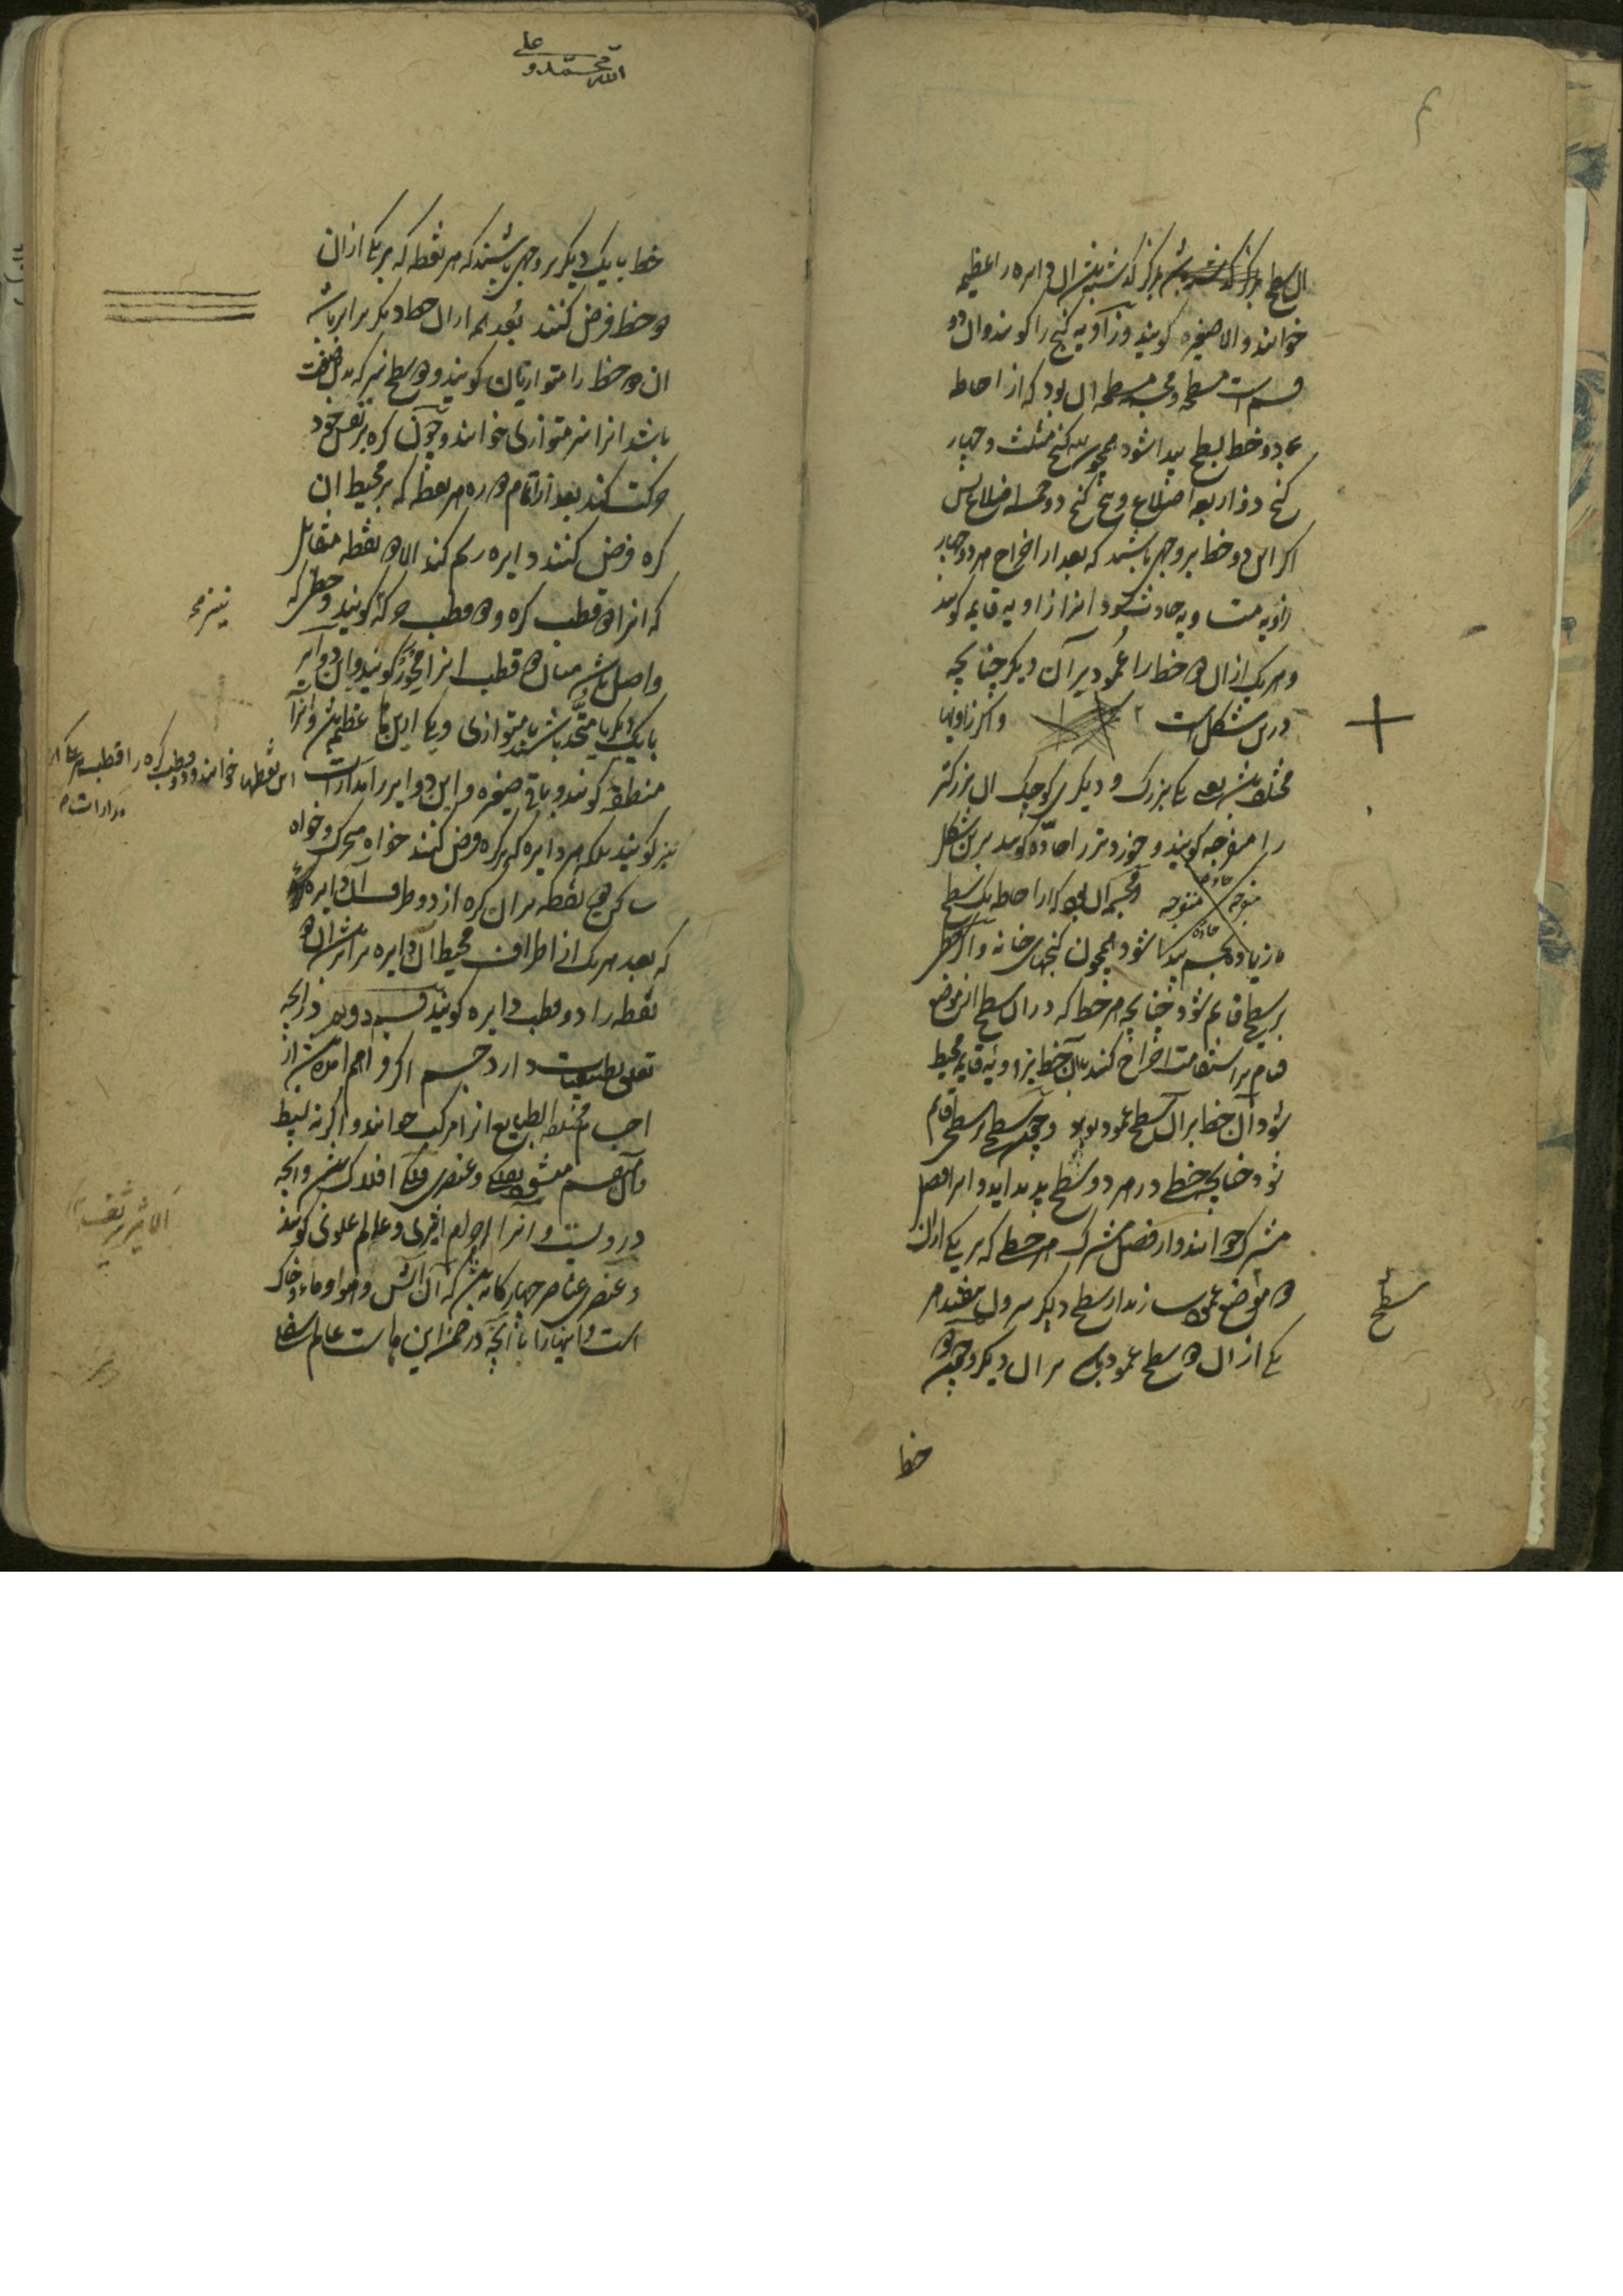 ان سطح بر مرکز کره گذشته باشد آن دایره را عظیمه
خوانند والا صغیره گویند و زاویه کنج را گویند و آن دو
قسم است مسطحه و مجسمه مسطحه آن بود که از احاطه
دو خط بسطح پیدا شود همچو سه کنج مثلث و چهار
کنج ذو اربعه اضلاع و پنج کنج ذو خمسه اضلاع پس
اگر این دو خط بر وجهی باشند که بعد از اخراج هر دو چهار
زاویه متساویه حادث شود آنرا زاویه قایمه گویند
و هر یک از آن دو خط را عمود بر آن دیگر چنانچه
درین شکل است و اگر زاویها
مختلف باشند یعنی یکی بزرگ و دیگری کوچک آن بزرگتر
را منفرجه گویند و خوردتر را حادّه گویند برین شکل
حاده
منفرجه منفرجه
حاده
و مجسمه آن بود که از احاطه یک سطح
یا زیاده بجسم پیدا شود همچون کنجهای خانه و اگر خطی
بر سطحی قایم شود چنانچه هر خط که در آن سطح از موضع
قیام بر استقامت اخراج کنند با آن خط بزاویه قایمه محیط
شود آن خط بر آن سطح عمود بود و چون سطحی بر سطحی قایم
شود چنانچه خطی در هر دو سطح پدید آید و آنرا فصل
مشترک خوانند و از فصل مشترک هر خطی که بر یکی از آن
دو موضع عمود سازند از سطح دیگر بیرون نیفتد هر
یکی از آن دو سطح عمود باشد بر آن دیگر و چون دو
سطح
خط
الله محمّد و علی
خط با یک دیگر بر وجهی باشند که هر نقطه که بر یکی از آن
دو خط فرض کنند بعد همه از آن خط دیگر برابر باشد
آن دو خط را متوازیان گویند و دو سطح نیز که بدین صفت
باشد آنرا نیز متوازی خوانند و چون کره بر نفس خود
حرکت کند بعد از تمام دوره هر نقطه که بر محیط آن
کره فرض کنند دایره رسم کند الا دو نقطه متقابل
که آنرا دو قطب کره و دو قطب حرکة گویند و خطی که
واصل باشد میان دو قطب آنرا محور گویند و این دوایر
با یکدیگر یا متّحد باشند یا متوازی و یکی ازین ها عظیمه باشد و آنرا
منطقه گویند و باقی صغیره و این دوایر را مدارات
نیز گویند بلکه هر دایره که بر کره فرض کنند خواه متحرک و خواه
ساکن دو نقطه بر آن کره از دو طرف آن دایره
که بعد هر یک از اطراف محیط آن دایره برابر باشد آن دو
نقطه را دو قطب دایره گویند قسم دویم در آنچه
تعلق بطبیعیات دارد جسم اگر فراهم آمده باشد از
اجسام مختلفة الطبایع آنرا مرکب خوانند و اگر نه بسیط
و آن قسم منقسم بفلکی و عنصری فلکی افلاک باشد و آنچه
دروست و آنرا اجرام اثیری و عالم علوی گویند
و عنصری عناصر چهارگانه باشد که آن آتش و هوا و ماء و خاک
است و اینها را با آنچه در ضمن این هاست عالم سفلی
این نقطها خوانند و دو قطب کره را قطب
مدارات